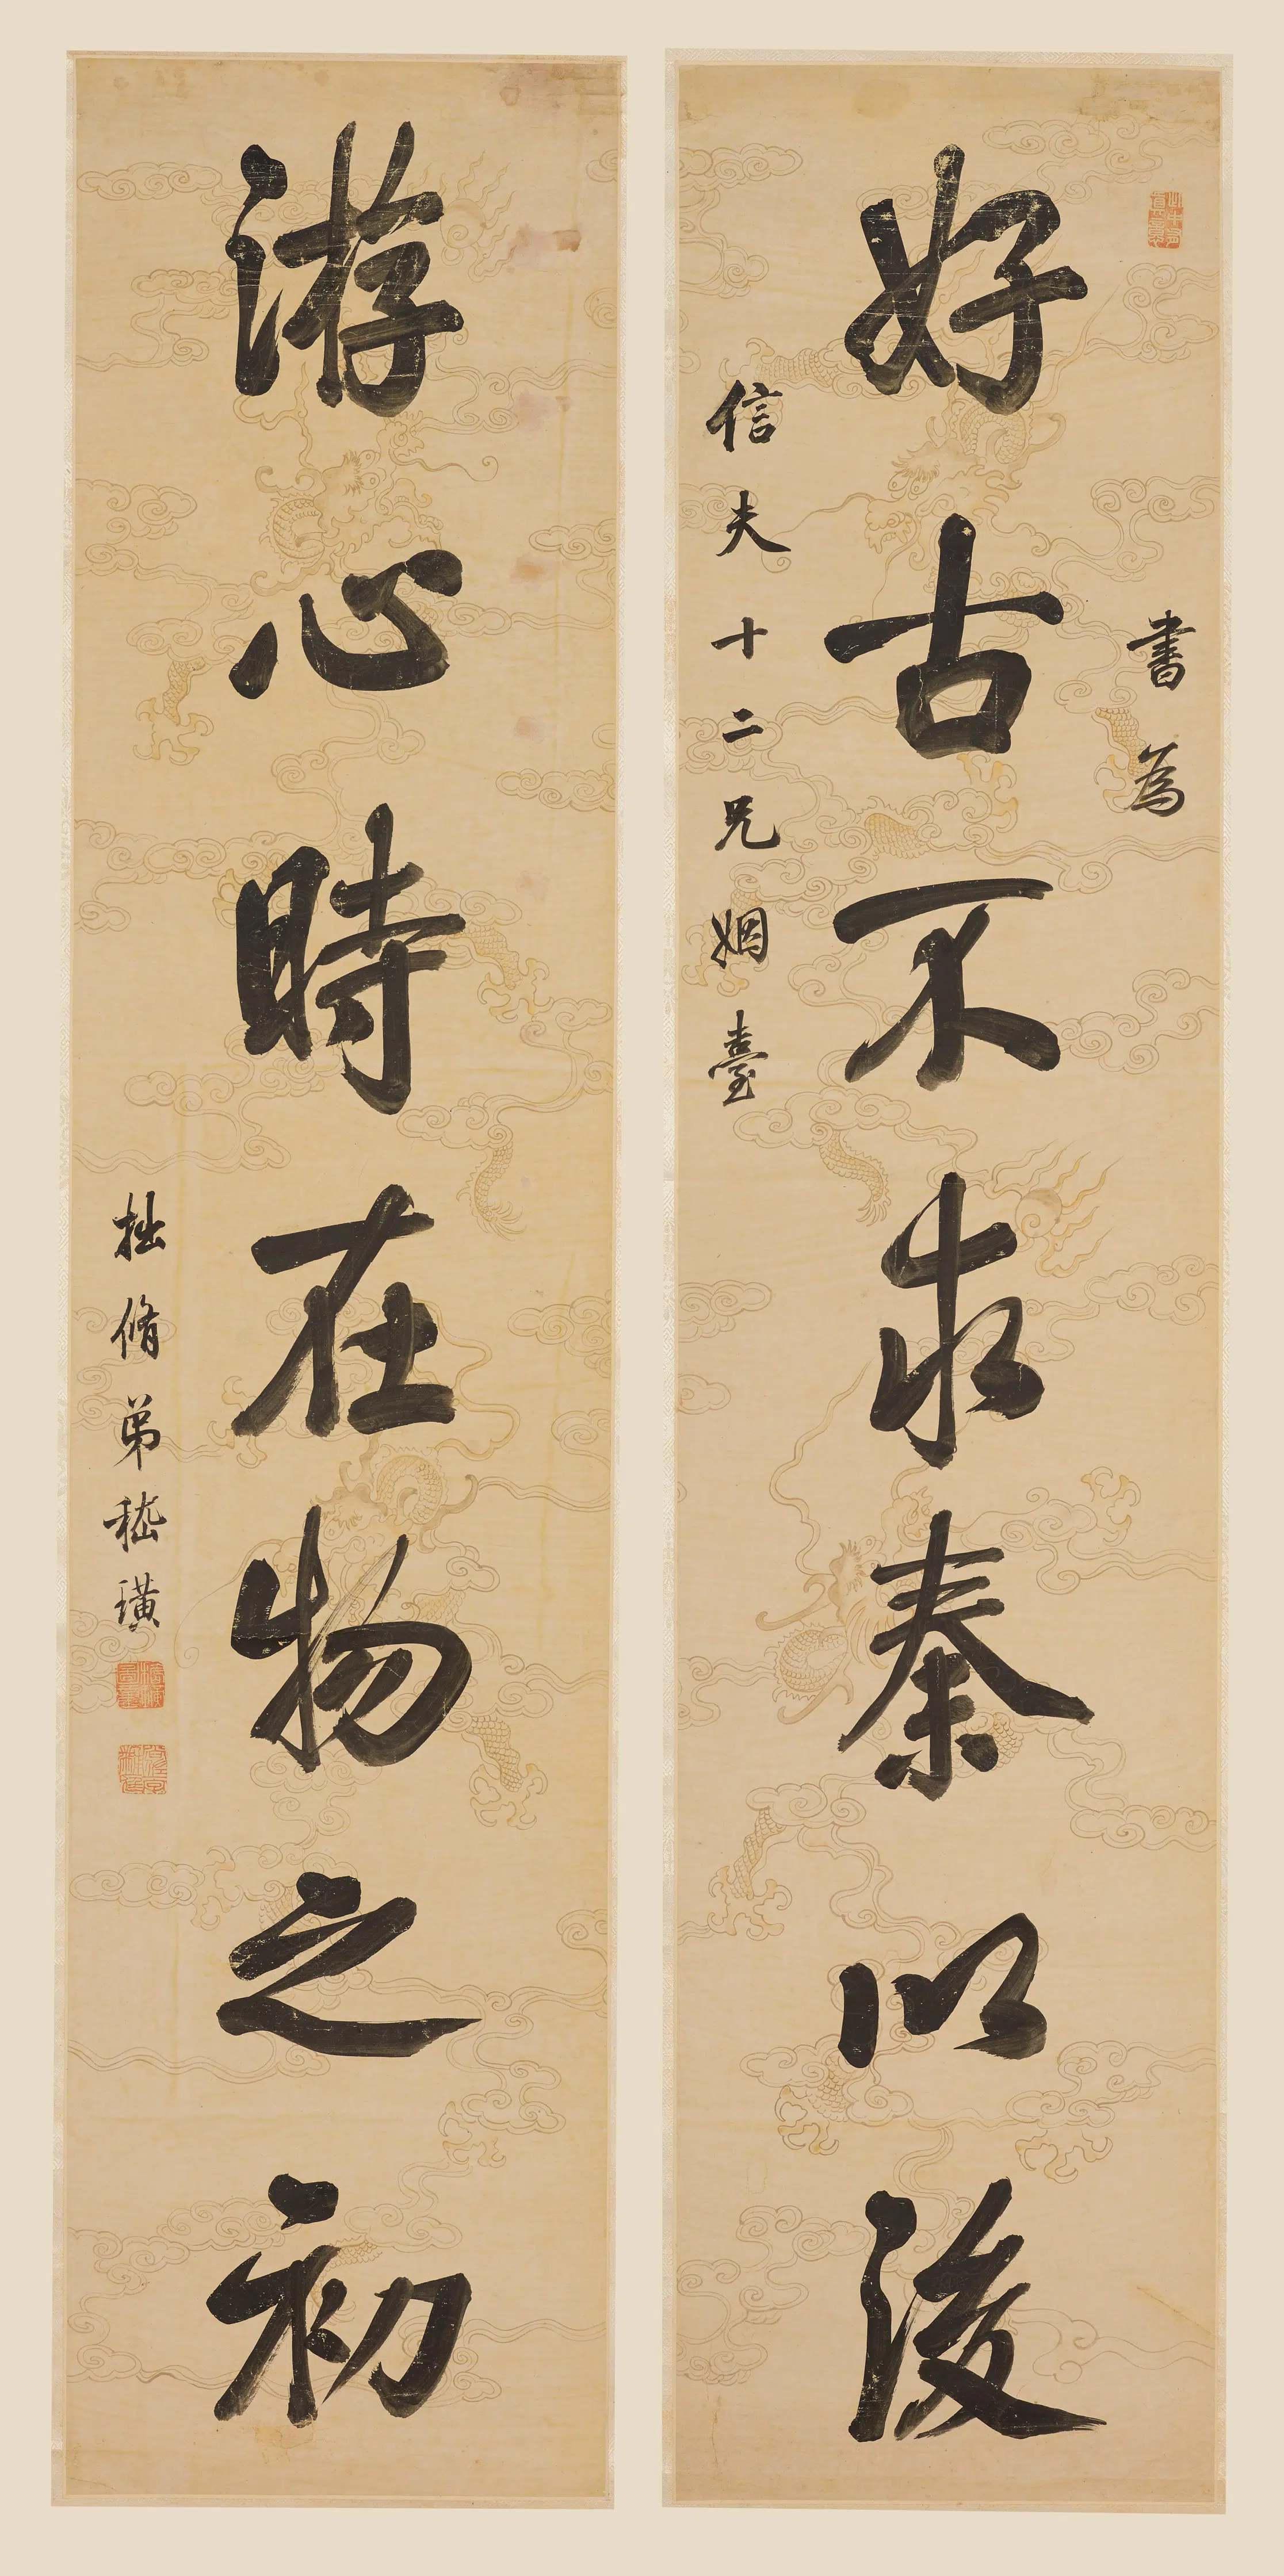 書為
好古不求秦以後
信夫十二兄姻臺
游心時在物之初
拙脩弟嵇璜